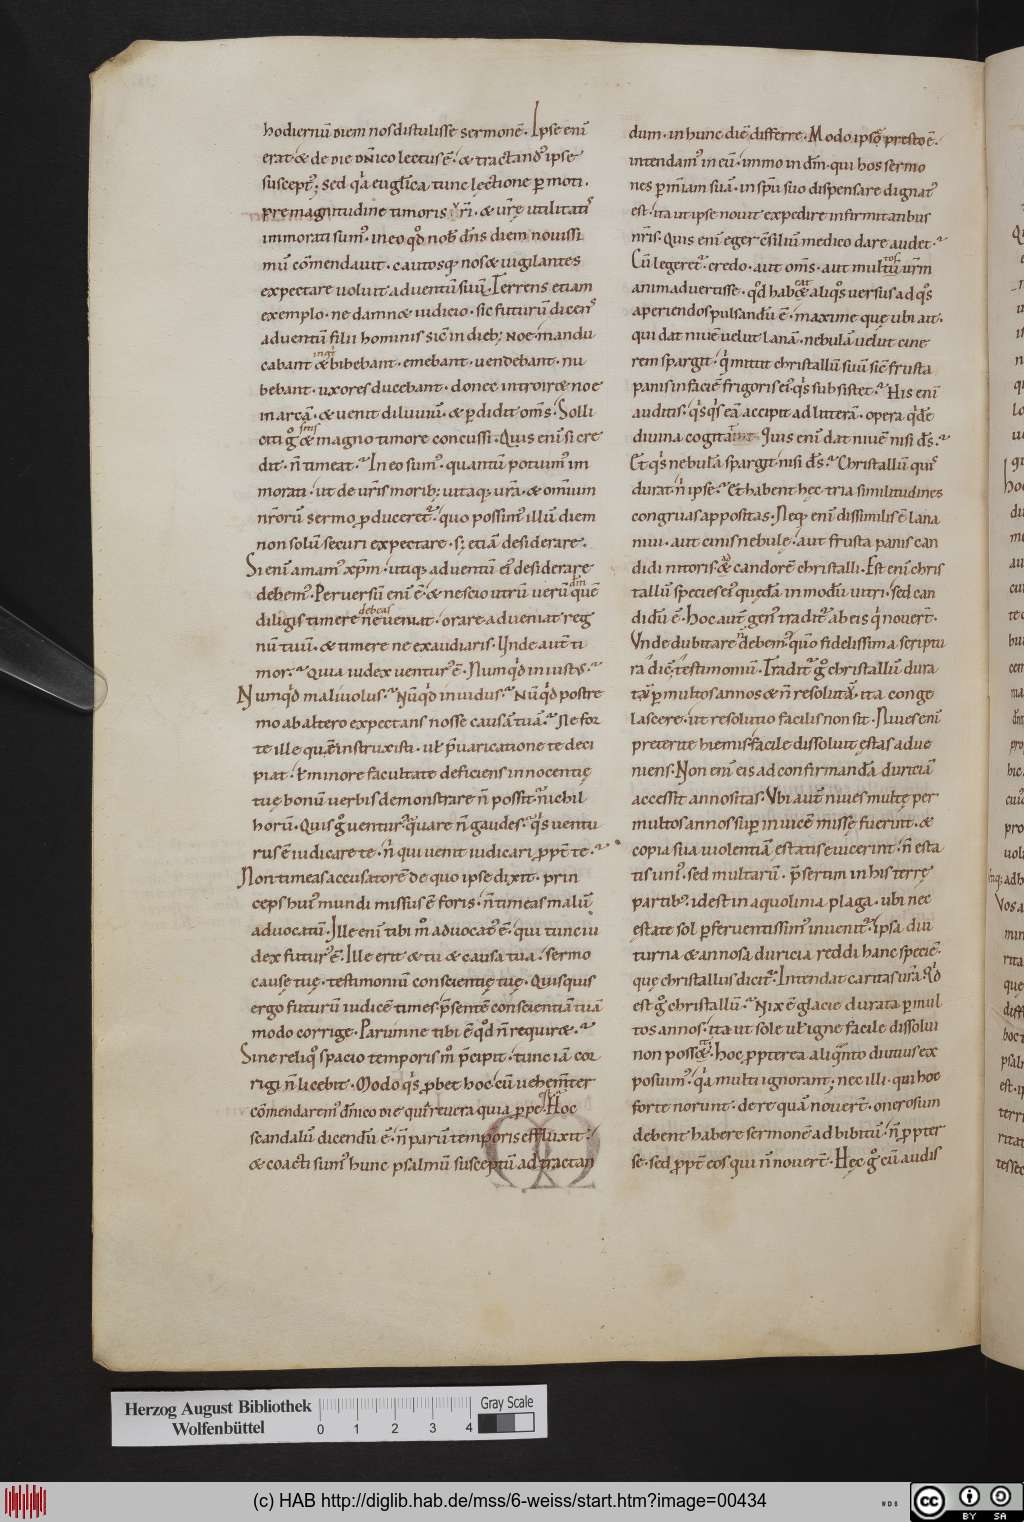 hodiernū diem nos distulisse sermonē. Ipse eni
erat & de die dn̄ico lectus ē. & tractand⁹ ipse
suscept⁹; sed q̇a euglica tunc lectione ꝑmoti.
pre magnitudine timoris ur̄i. & ur̄ę utilitati⁹
immorati sum⁹. in eo qd̄ nob̄ dn̄s diem nouissi
mū cōmendauit. cautosq; nos & uigilantes
expectare uoluit aduentū suū. Terrens etiam
exemplo. ne damn& iudicio. sic futurū dicens
aduentū filii hominis sic̄ in dieb; noe. mandu
cabant inqt & bibebant. emebant. uendebant. nu
bebant. uxores ducebant. donec introir& noe
in arcā. & uenit diluuiū. & ꝑdidit om̄s. Solli
citi g̊ sm̄s & magno timore concussi. Quis eni si cre
dit. n̄ timeat. In eo sum⁹. quantū potuim⁹ im
morati. ut de ur̄is morib; uitaq; ur̄a. & omnium
nr̄orū sermo ꝓduceret᷑. quo possim⁹ illū diem
non solū securi expectare. s; etiā desiderare.
Si eni amam⁹ xp̄m. utiq; aduentū ei⁹ desiderare
debem⁹. Peruersū eni ē & nescio utrū uerū quē dm̄
diligis timere debeas ne ueniat. orare adueniat reg
nū tuū. & timere ne exaudiaris. Unde aut̄ ti
mor. Quia iudex uentur⁹ ē. Numqd̄ iniustus.
Numqd̄ maliuolus. Nūqd̄ inuidus. Nūqd̄ postre
mo ab altero expectans nosse causā tuā. Ne for
te ille quē instruxisti. uł p̄uaricatione te deci
piat. ł minore facultate deficiens innocentię
tuę bonū uerbis demonstrare n̄ possit. nichil
horū. Quis g̊ uentur⁹. quare n̄ gaudes. q̇s uentu
rus ē iudicare te. n̄ qui uenit iudicari ꝓpt̄ te.
Non timeas accusatorē de quo ipse dixit. prin
ceps hui⁹ mundi missus ē foris. n̄ timeas malū
aduocatū. Ille eni tibi m̊ aduocat⁹ ē. qui tunc iu
dex futur⁹ ē. Ille erit & tu & causa tua. sermo
causę tuę. testimoniū conscientię tuę. Quisquis
ergo futurū iudicē times. p̄sentē conscientiā tuā
modo corrige. Parumne tibi ē qd̄ n̄ requir&.
Sine reliq̊ spacio temporis m̊ p̄cipit. tunc iā cor
rigi n̄ licebit. Modo q̇s ꝓbet hoc. cū uehem̄ter
cōmendarem⁹ dn̄ico die reuera quia Hoc
scandalū dicendū ē. n̄ parū temporis effluxit.
& coacti sum⁹ hunc psalmū susceptū ad tractan
dum. in hunc diē differre. Modo ipso presto ē.
intendam⁹ in eū. immo in dm̄. qui hos sermo
nes ꝑ mīam suā. in spū suo dispensare dignat⁹
est. ita ut ipse nouit expedire infirmitatibus
nr̄is. Quis eni eger cōsiliū medico dare audet.
Cū legeret᷑. credo. aut om̄s. aut multū ur̄m
animaduertisse. qd̄ hab& aliq̊s uersus ad q̊s
aperiendos pulsandū ē. maxime quę ubi ait.
qui dat niuē uelut lanā. nebulā uelut cine
rem spargit. q̇ mittit christallū suū sic̄ frusta
panis in faciē frigoris ei⁹ q̇s subsistet. His eni
auditis. q̇sq̇s eā accipit ad litterā. opera q̇dē
diuina cogitat. Quis eni dat niuē nisi ds̄.
Et q̇s nebulā spargit nisi ds̄. Christallū quis
durat. n̄ ipse. Et habent hęc tria similitudines
congruas appositas. Neq; eni dissimilis ē lana
niui. aut cinis nebulę. aut frusta panis can
didi nitoris & candorē christalli. Est eni chris
tallū species ei⁹ quędā in modū uitri. sed can
didū ē. Hoc aut̄ gen⁹ tradit᷑ ab eis q̇ nouert̄.
Vnde dubitare n̄ debem⁹. quō fidelissima scriptu
ra dic̄. testimoniū. Tradit᷑ g̊ christallū dura
tā ꝑ multos annos & n̄ resolutā. ita conge
lascere. ut resolutio facilis non sit. Niues eni
preterite hiemis. facile dissoluit ęstas adue
niens. Non eni eis ad confirmandā duriciā
accessit annositas. Vbi aut̄ niues multę per
multos annos suꝑ inuicē missę fuerint. &
copia sua uiolentiā estatis euicerint. n̄ esta
tis uni⁹. sed multarū. p̄sertim in his terrę
partib⁹. id est in aquolinia plaga. ubi nec
ęstate sol ꝑferuentissim⁹ inuenit᷑. ipsa diu
turna & annosa duricia reddi hanc speciē.
quę christallus dicit᷑. Intendat caritas ur̄a. Qd̄
est g̊ christallū. Nix ē glacie durata ꝑ mul
tos annos. ita ut sole uł igne facile dissolui
non poss&. hoc ꝓpterea aliq̄nto diutius ex
posuim⁹. q̇a multi ignorant; nec illi. qui hoc
forte norunt. de re quā nouert̄. onerosum
debent habere sermonē adhibitū. n̄ ꝓpter
se. sed ꝓpt̄ eos qui n̄ nouert̄. Hęc g̊ cū audis
Herzog August Bibliothek
Wolfenbüttel
0 1 2 3 4
Gray Scale
(c) HAB http://diglib.hab.de/mss/6-weiss/start.htm?image=00434
cc BY SA